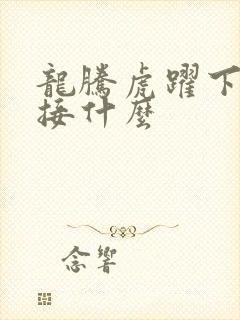 龍騰虎躍下
接什麼
念響